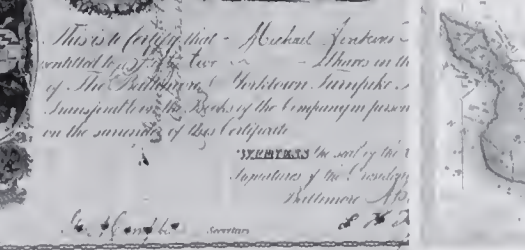 This is to Certify that - Michael Jenkins
entitled to Fifty Two Shares in th
of The Baltimore & Yorktown Turnpike
Transferable on the Books of the Company in person
on the surrender of this Certificate
WITNESS the seal of the
Signatures of the Presiden
Baltimore
Secretary